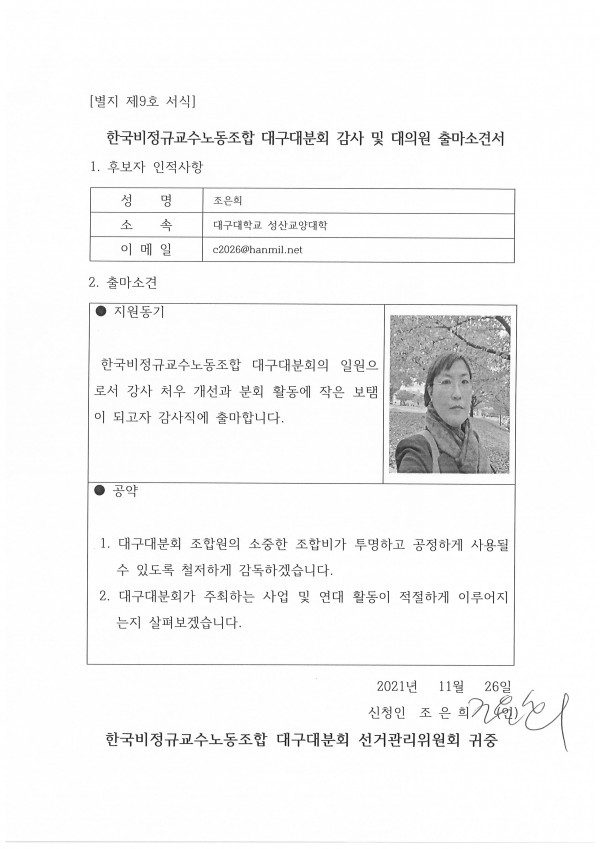 [별지 제9호 서식]
한국비정규교수노동조합 대구대분회 감사 및 대의원 출마소견서
1. 후보자 인적사항
성 명 조은희
소 속 대구대학교 성산교양대학
이 메 일 c2026@hanmil.net
2. 출마소견
● 지원동기
한국비정규교수노동조합 대구대분회의 일원으
로서 강사 처우 개선과 분회 활동에 작은 보탬
이 되고자 감사직에 출마합니다.
● 공약
1. 대구대분회 조합원의 소중한 조합비가 투명하고 공정하게 사용될
수 있도록 철저하게 감독하겠습니다.
2. 대구대분회가 주최하는 사업 및 연대 활동이 적절하게 이루어지
는지 살펴보겠습니다.
2021년 11월 26일
신청인 조 은 희 (인)
한국비정규교수노동조합 대구대분회 선거관리위원회 귀중